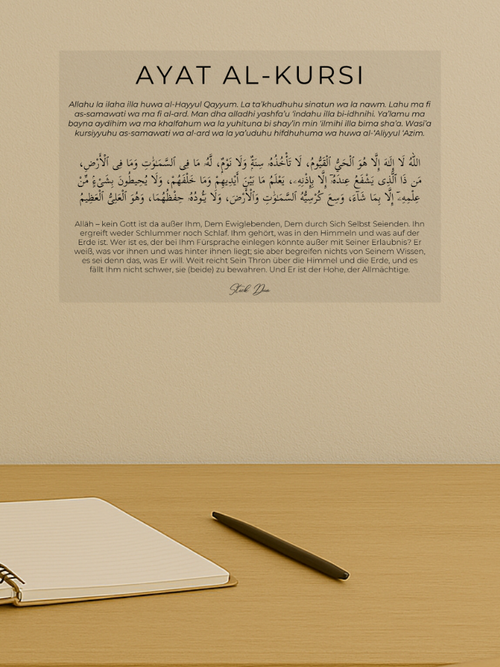 AYAT AL-KURSI
Allahu la ilaha illa huwa al-Hayyul Qayyum. La ta'khudhuhu sinatun wa la nawm. Lahu ma fi
as-samawati wa ma fi al-ard. Man dha alladhi yashfa'u 'indahu illa bi-idhnihi. Ya'lamu ma
bayna aydihim wa ma khalfahum wa la yuhituna bi shay'in min 'ilmihi illa bima sha'a. Wasi'a
kursiyyuhu as-samawati wa al-ard wa la ya'uduhu hifdhuhuma wa huwa al-'Aliyyul 'Azim.
اللّٰهُ لَا إِلٰهَ إِلَّا هُوَ الْحَيُّ الْقَيُّومُ، لَا تَأْخُذُهُ سِنَةٌ وَلَا نَوْمٌ، لَّهُ مَا فِي السَّمٰوٰتِ وَمَا فِي الْأَرْضِ،
مَن ذَا الَّذِي يَشْفَعُ عِندَهُ إِلَّا بِإِذْنِهِ، يَعْلَمُ مَا بَيْنَ أَيْدِيهِمْ وَمَا خَلْفَهُمْ، وَلَا يُحِيطُونَ بِشَيْءٍ مِّنْ
عِلْمِهِ إِلَّا بِمَا شَآءَ، وَسِعَ كُرْسِيُّهُ السَّمٰوٰتِ وَالْأَرْضَ، وَلَا يَئُودُهُ حِفْظُهُمَا، وَهُوَ الْعَلِيُّ الْعَظِيمُ
Allāh – kein Gott ist da außer Ihm, Dem Ewiglebenden, Dem durch Sich Selbst Seienden. Ihn
ergreift weder Schlummer noch Schlaf. Ihm gehört, was in den Himmeln und was auf der
Erde ist. Wer ist es, der bei Ihm Fürsprache einlegen könnte außer mit Seiner Erlaubnis? Er
weiß, was vor ihnen und was hinter ihnen liegt; sie aber begreifen nichts von Seinem Wissen,
es sei denn das, was Er will. Weit reicht Sein Thron über die Himmel und die Erde, und es
fällt Ihm nicht schwer, sie (beide) zu bewahren. Und Er ist der Hohe, der Allmächtige.